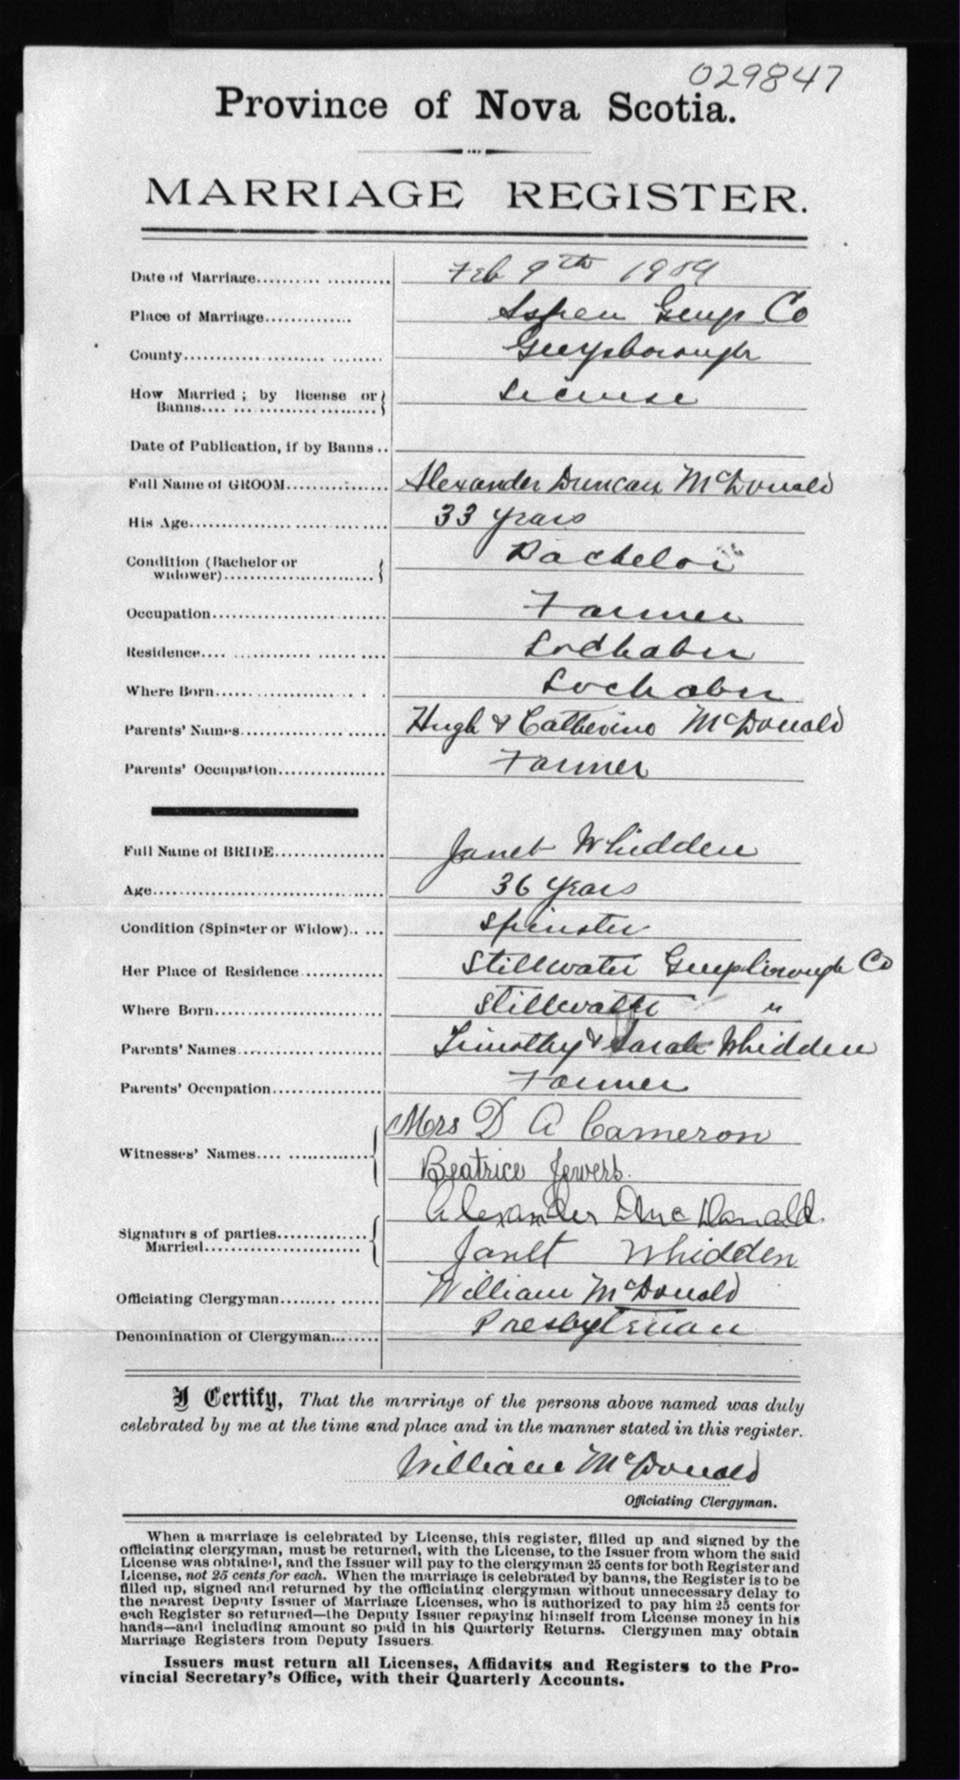 029847
Province of Nova Scotia.
MARRIAGE REGISTER.
Date of Marriage.......... Feb 9th 1909
Place of Marriage............. Aspen Guys Co
County........................... Guysborough
How Married ; by license or License
Banns.... ... ......................
Date of Publication, if by Banns ..
Full Name of GROOM.............. Alexander Duncan McDonald
His Age.............................. 33 years
Condition (Bachelor or Bachelor
widower)..........................
Occupation............................ Farmer
Residence.... .......................... Lochaber
Where Born............................ Lochaber
Parents' Names........................ Hugh & Catherine McDonald
Parents' Occupation................. Farmer
Full Name of BRIDE................. Janet Whidden
Age...................................... 36 years
Condition (Spinster or Widow).. .... Spinster
Her Place of Residence ............ Stillwater Guysborough Co
Where Born............................ Stillwater "
Parents' Names........................ Timothy & Sarah Whidden
Parents' Occupation................. Farmer
Mrs D A Cameron
Witnesses' Names.... ...............
Beatrice Jewers.
Alexander D McDonald.
Signatures of parties..............
Married......................... Janet Whidden
Officiating Clergyman......... ...... William McDonald
Denomination of Clergyman........ Presbyterian
I Certify, That the marriage of the persons above named was duly
celebrated by me at the time and place and in the manner stated in this register.
William McDonald
Officiating Clergyman.
When a marriage is celebrated by License, this register, filled up and signed by the
officiating clergyman, must be returned, with the License, to the Issuer from whom the said
License was obtained, and the Issuer will pay to the clergyman 25 cents for both Register and
License, not 25 cents for each. When the marriage is celebrated by banns, the Register is to be
filled up, signed and returned by the officiating clergyman without unnecessary delay to
the nearest Deputy Issuer of Marriage Licenses, who is authorized to pay him 25 cents for
each Register so returned—the Deputy Issuer repaying himself from License money in his
hands—and including amount so paid in his Quarterly Returns. Clergymen may obtain
Marriage Registers from Deputy Issuers.
Issuers must return all Licenses, Affidavits and Registers to the Pro-
vincial Secretary's Office, with their Quarterly Accounts.